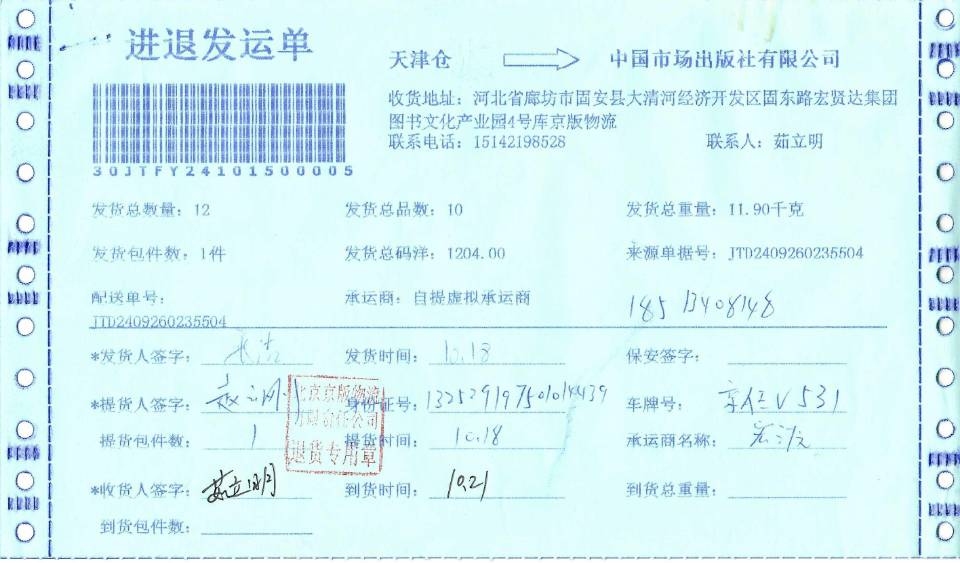 进退发运单
天津仓 中国市场出版社有限公司
收货地址：河北省廊坊市固安县大清河经济开发区固东路宏贤达集团
图书文化产业园4号库京版物流
联系电话：15142198528 联系人：茹立明
30JTFY24101500005
发货总数量：12 发货总品数：10 发货总重量：11.90千克
发货包件数：1件 发货总码洋：1204.00 来源单据号：JTD2409260235504
配送单号： 承运商：自提虚拟承运商
JTD2409260235504
*发货人签字： 发货时间：10.18 保安签字：
*提货人签字： 身份证号： 车牌号：
北京京版物流
有限责任公司
退货专用章
提货包件数：1 提货时间：10.18 承运商名称：
*收货人签字：茹立明 到货时间：10.21 到货总重量：
到货包件数：